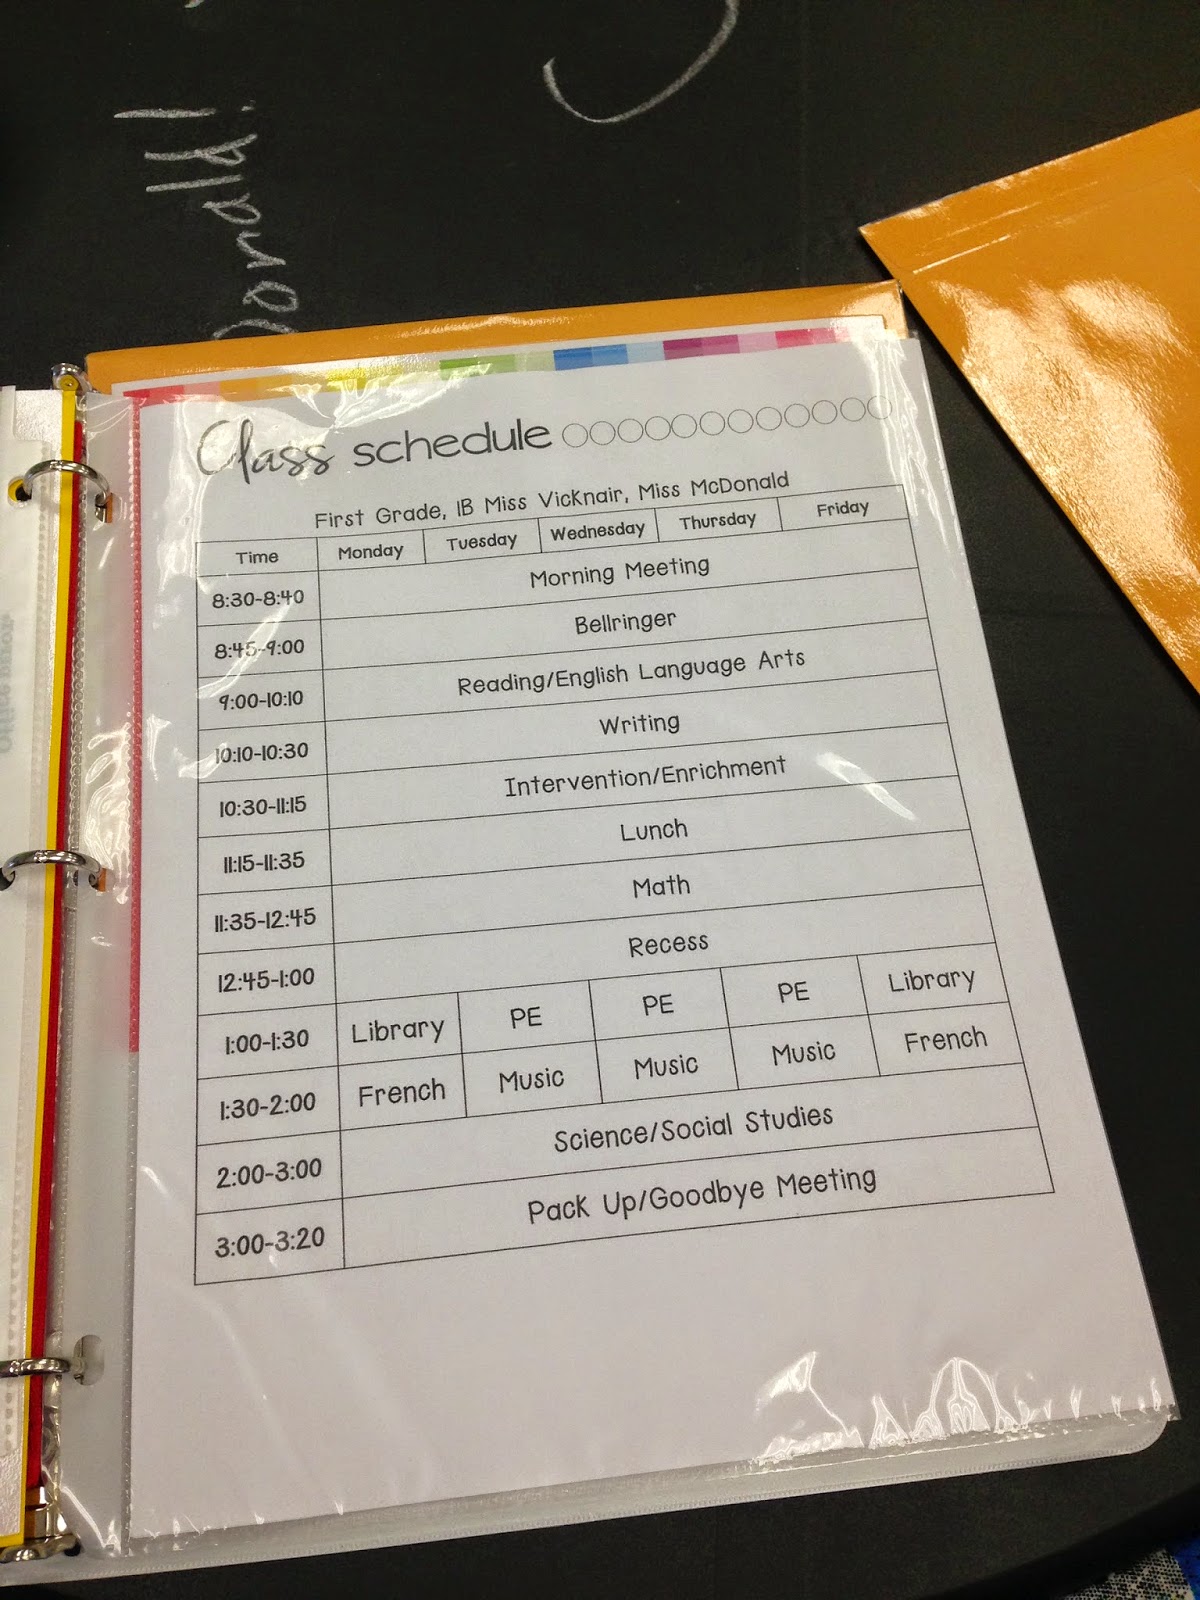 Class schedule
First Grade, 1B Miss Vicknair, Miss McDonald
Time Monday Tuesday Wednesday Thursday Friday
8:30-8:40 Morning Meeting
8:45-9:00 Bellringer
9:00-10:10 Reading/English Language Arts
10:10-10:30 Writing
10:30-11:15 Intervention/Enrichment
11:15-11:35 Lunch
11:35-12:45 Math
12:45-1:00 Recess
1:00-1:30 Library PE PE PE Library
1:30-2:00 French Music Music Music French
2:00-3:00 Science/Social Studies
3:00-3:20 Pack Up/Goodbye Meeting